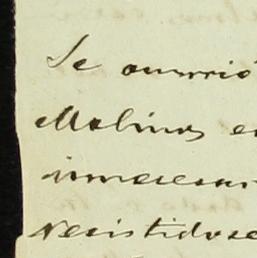 Se ocurrió
Molinos e
innecesar
resistidose